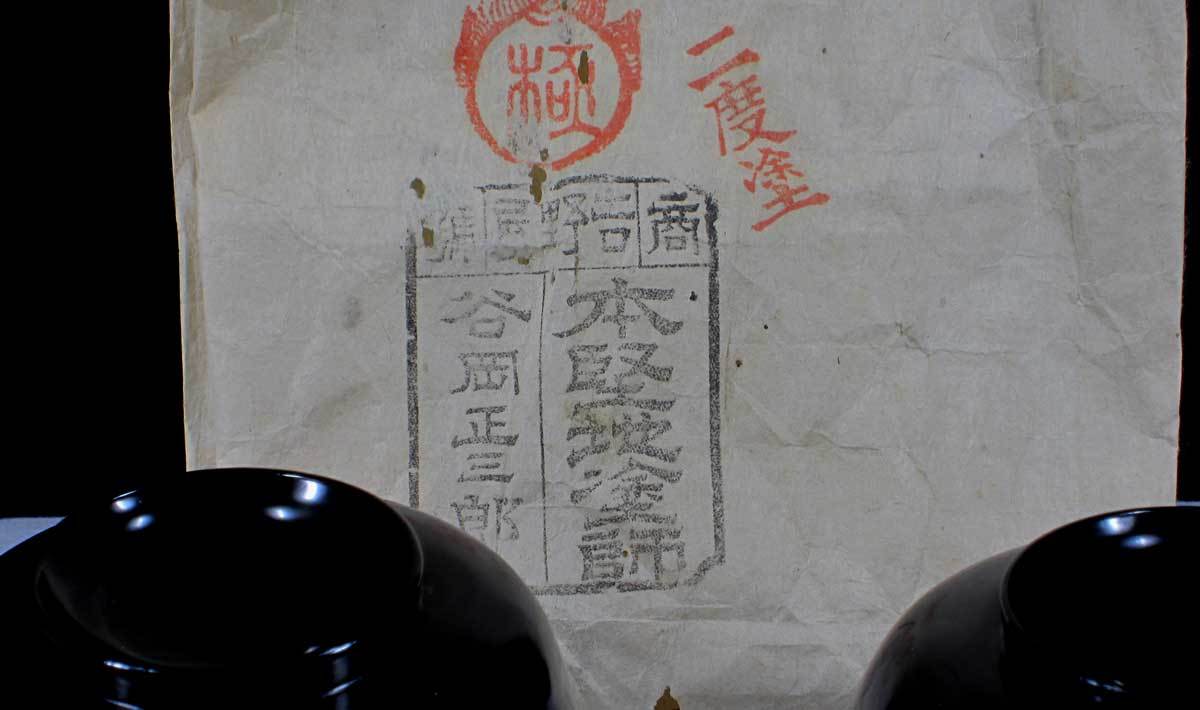 極
二度塗
商吉野屋
本堅地塗師
谷岡正三郎